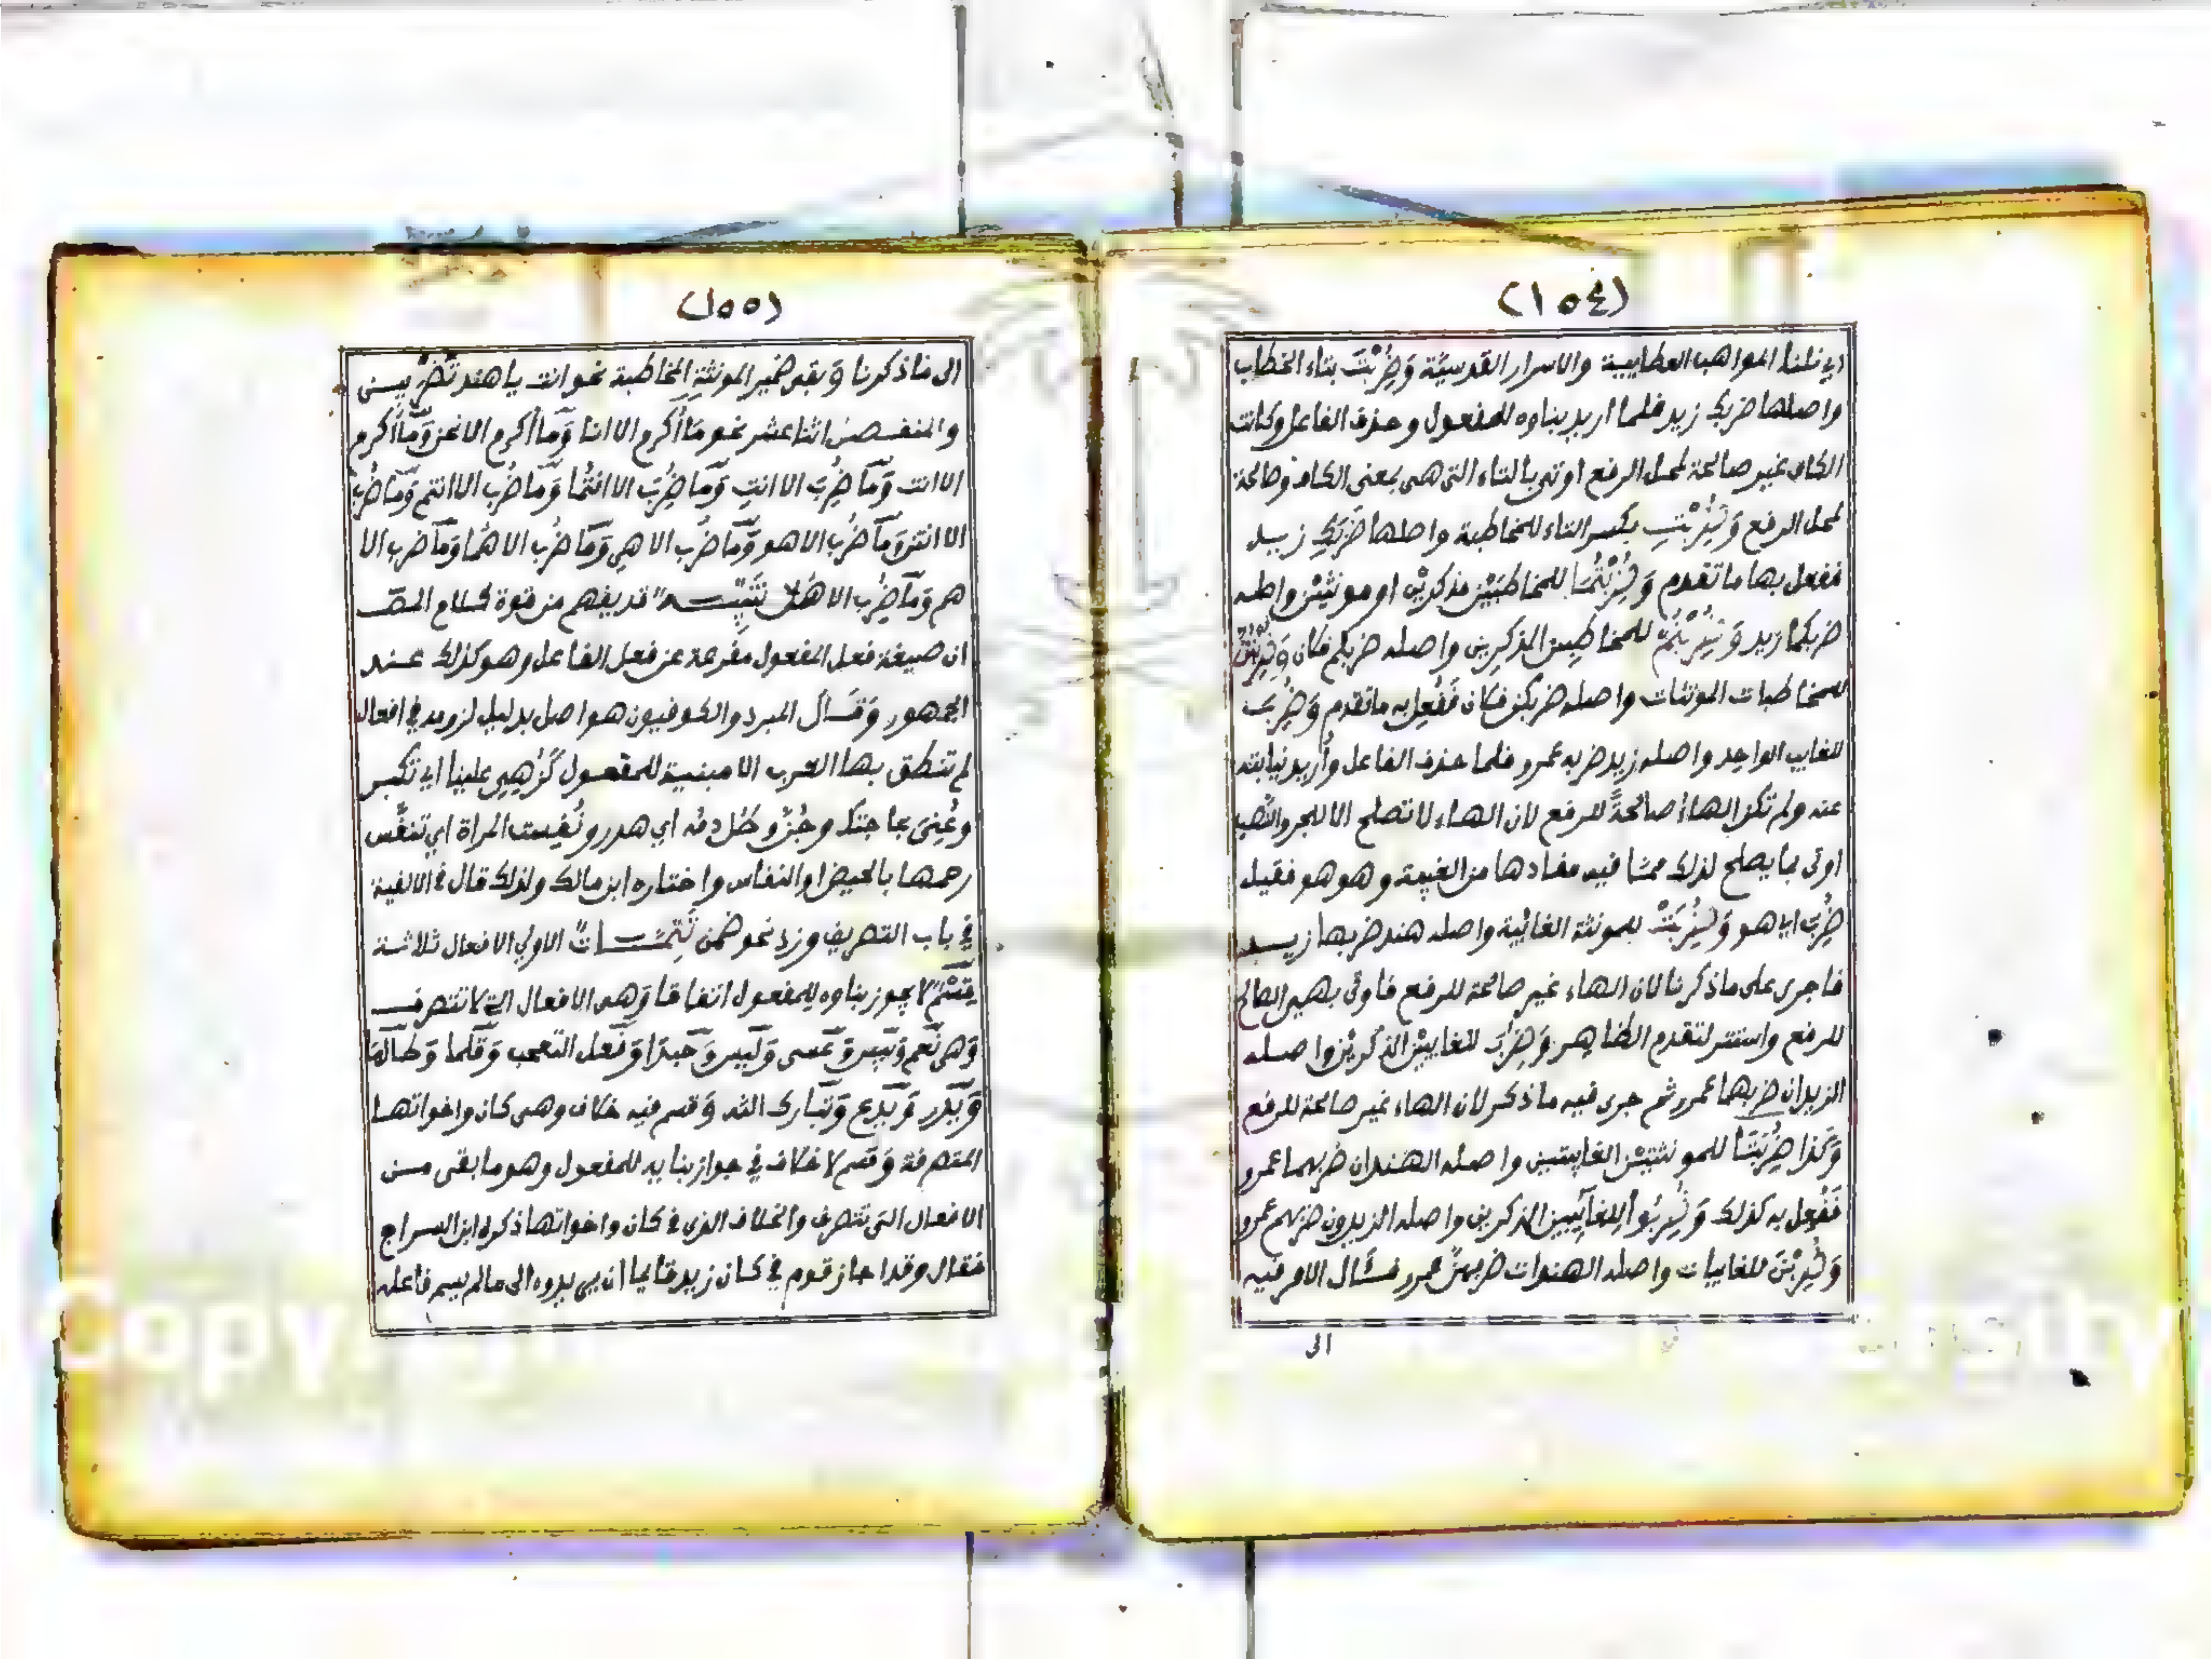 (١٥٤)
اي نلنا المواهب العطاييية والاسرار القدسيَّة وَضُرِبْتَ بتاء الخطاب
واصلها ضربك زيد فلما اريد بناوه للمفعول وحذف الفاعل وكانت
الكاف غير صالحة لمحل الرفع اوتي بالتاء التي هي بمعنى الكاف وصالحة
لمحل الرفع وَضُرِبْتِ بكسر التاء للمخاطبة واصلها ضَرَبَكِ زيد
ففعل بها ما تقدم وَضُرِبْتُمَا للمخاطبَيْن مذكرين او مونثيْن واصله
ضربكما زيد وَضُرِبْتُمْ للمخاطبين المذكرين واصله ضربكم فكان وَضُرِبْتُنَّ
للمخاطبات المونثات واصله ضربكن فكان فَفُعِل به ما تقدم وَضُرِبَ
للغايب الواحد واصله زيد ضربه عمرو فلما حذف الفاعل وأُريد نيابته
عنه ولم تكن الهاءُ صالحةً للرفع لان الهاء لا تصلح الا للجر والنصب
اوتي بما يصلح لذلك مما فيه مفادها من الغيبة وهو هو فقيل
ضُرِبَ اي هو وَضُرِبَتْ للمونثة الغائبة واصله هند ضربها زيد
فاجرى على ما ذكرنا لان الهاء غير صالحة للرفع فاوتي بهي الصالح
للرفع واستتر لتقدم الظاهر وَضُرِبَا للغايبيْن الذكريْن واصله
الزيدان ضربهما عمرو ثم جرى فيه ما ذكر لان الهاء غير صالحة للرفع
وَكذا ضُرِبَتَا للمونثتيْن الغايبتين واصله الهندان ضربهما عمرو
فَفُعِل به كذلك وَضُرِبُوا للغايبين الذكرين واصله الزيدون ضربهم عمرو
وَضُرِبْنَ للغايبات واصله الهندات ضربهنَّ عمرو فسَال الامر فيه
الى
(١٥٥)
الى ما ذكرنا وَبقى ضمير المونثةِ المخاطبة نحو انت يا هند تُضْربين
والمنفصل اثنا عشر نحو مَا أُكرم الا انا وَما أُكرم الا نحن وَما أُكرم
الا انت وَمَا ضُرِبَ الا انتِ وَمَا ضُرِبَ الا انتُما وَما ضُرِب الا انتم وَما ضُرِبَ
الا انتن وَما ضُرِب الا هو وَما ضُرِب الا هي وَمَا ضُرِب الا هُما وَمَا ضُرب الا
هم وَمَا ضُرِب الا هُنَّ تَنْبِيْهٌ قد يفهم من قوة كلام المصَ
ان صيغة فعل المفعول مفرعة عن فعل الفاعل وهو كذلك عند
الجمهور وَقَال المبرد والكوفيون هو اصل بدليل لزومه في افعال
لم تنطق بها العرب الا مبنية للمفعول كَزُهِي علينا اي تكبر
وعُنِىَ بحاجتك وجُنَّ وطُل دمُه اي هدر ونُفِست المراة اي تنفَّس
رحمها بالحيض او النفاس واختاره ابن مالك ولذلك قال في الالفية
في باب التصريف وزد نحو ضُمن تَتِمَّاتٌ الاولي الافعال ثلاثة
قِسْمٌ لا يجوز بناوه للمفعول اتفاقا وَهى الافعال التي لا تتصرف
وَهى نَعم وَبئس وَعَسى وَلَيس وَحَبذا وَفَعل التعجب وَقَلّما وَطالما
وَيَذَر وَيَدع وَتَبارك الله وَقسم فيه خلاف وهى كان واخواتها
المتصرفة وَقسم لا خلاف في جواز بنايه للمفعول وهو ما بقى من
الافعال التى تتصرف والخلاف الذى في كان واخواتها ذكره ابن السراج
فقال وقد اجاز قوم في كان زيد قايما ان ييردوه الى ما لم يسم فاعله